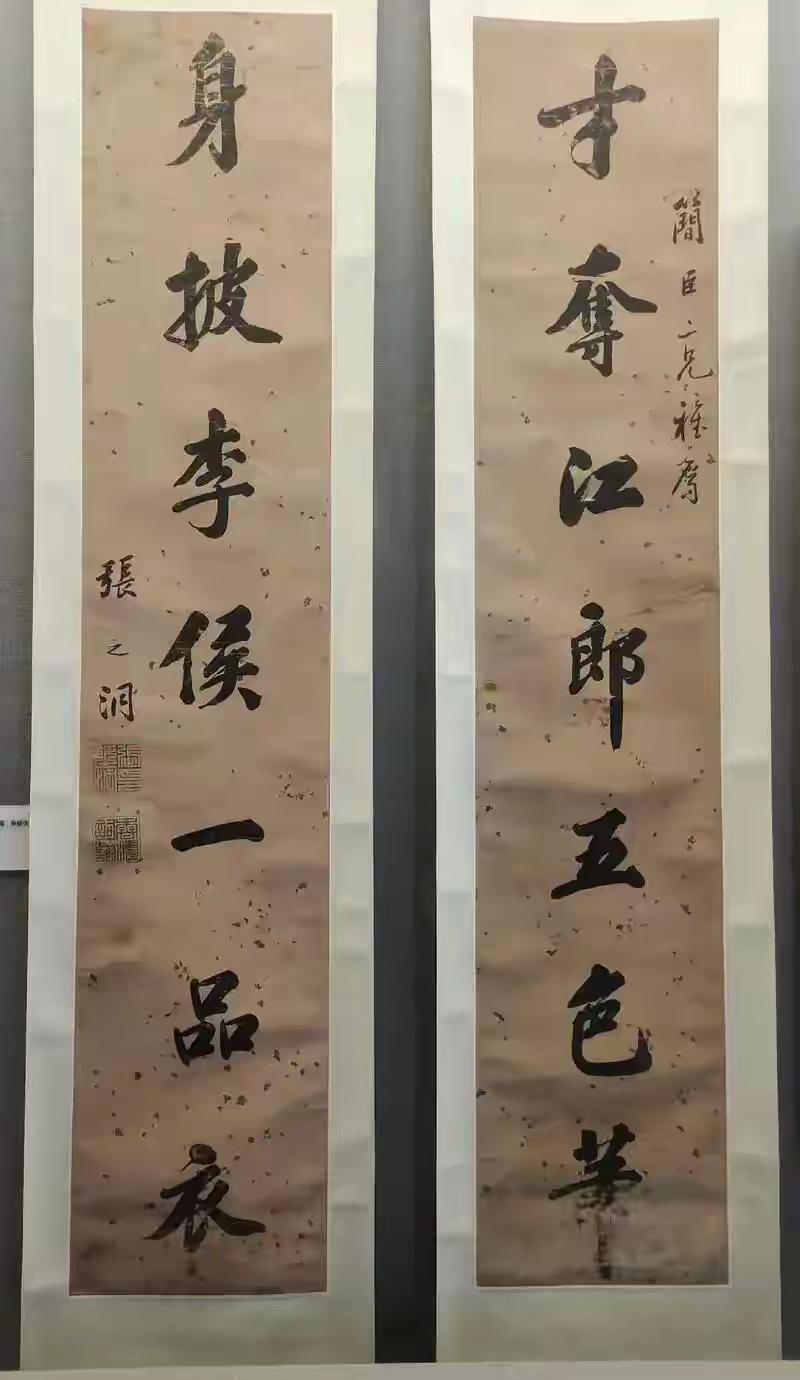 簡臣二兄雅屬
才奪江郎五色筆
身披李侯一品衣
張之洞